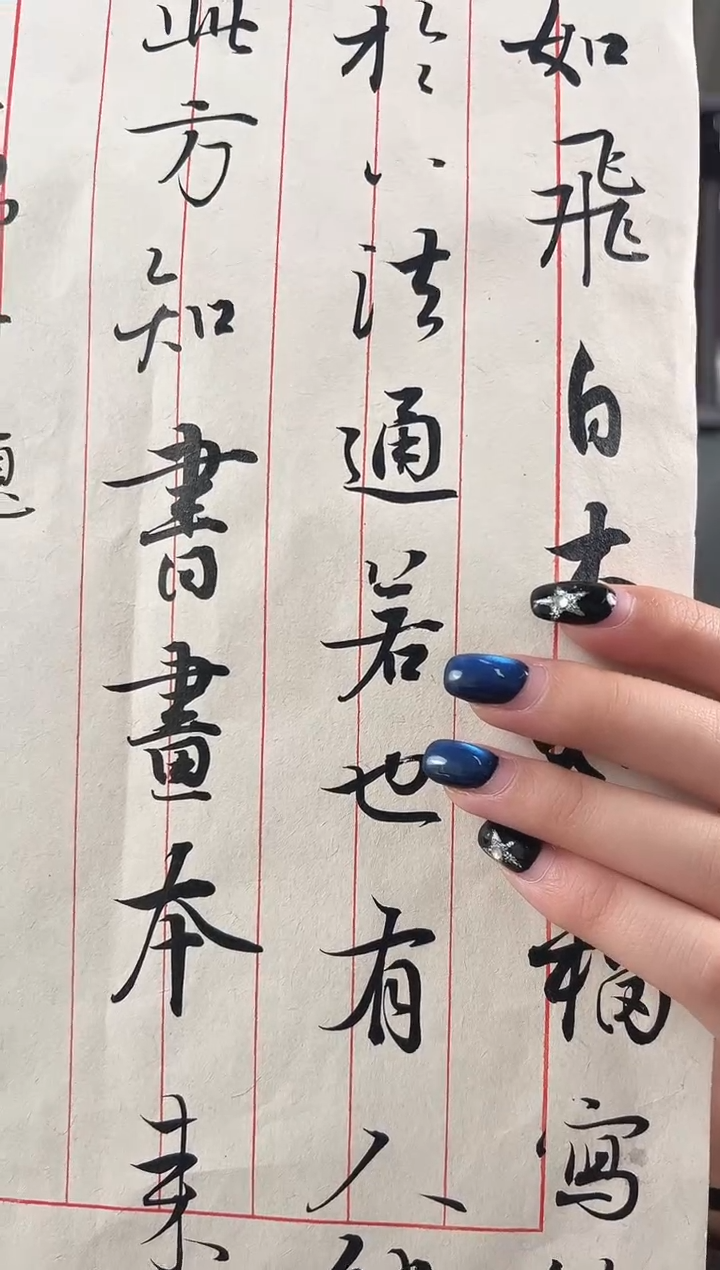 如飛白寫
於八法通若也有人
此方知書畫本来